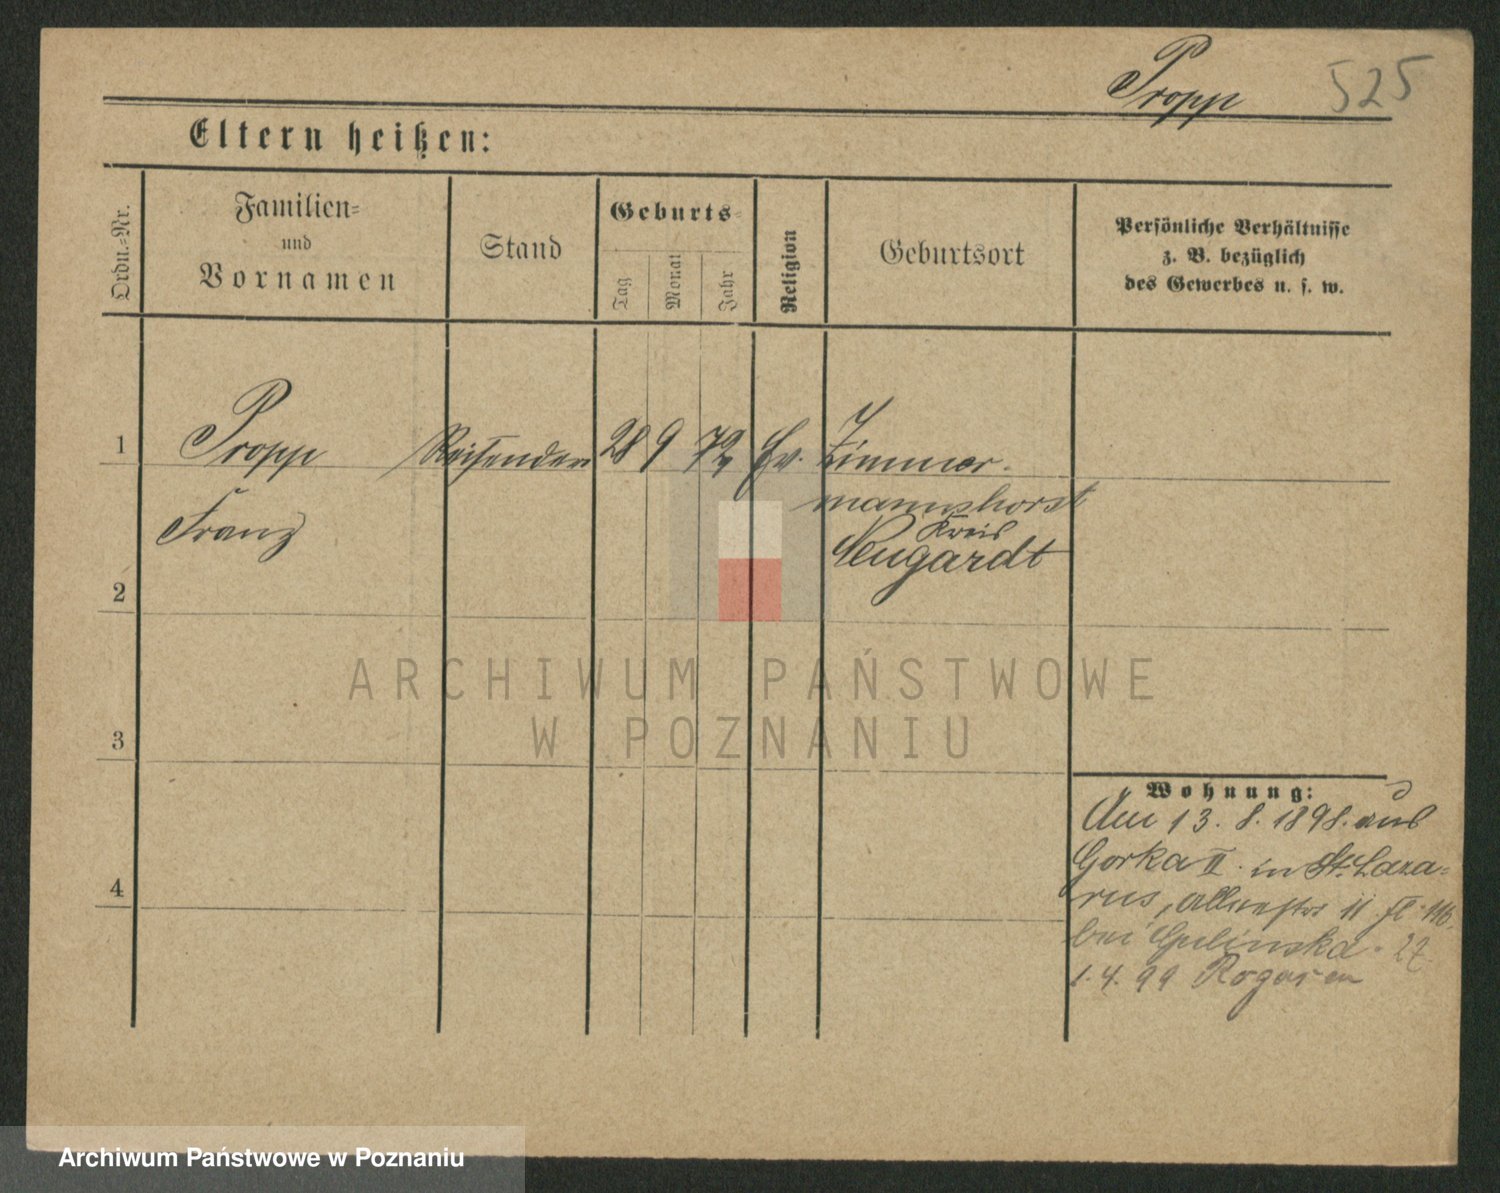 Propp 525
Eltern heißen:
Ordn.=Nr.
Familien=
und
Vornamen
Stand
Geburts=
Tag
Monat
Jahr
Religion
Geburtsort
Persönliche Verhältnisse
z. B. bezüglich
des Gewerbes u. s. w.
1 Propp Reisender 28 9 72 Ev. Zimmer-
mannshorst
Franz Kreis
Neugardt
2
ARCHIWUM PAŃSTWOWE
W POZNANIU
3
Wohnung:
Am 13. 8. 1898. aus
Gorka II. in St. Laza=
rus, 11
bei Gulinska. 27.
1. 4. 99 Rogasen
4
Archiwum Państwowe w Poznaniu